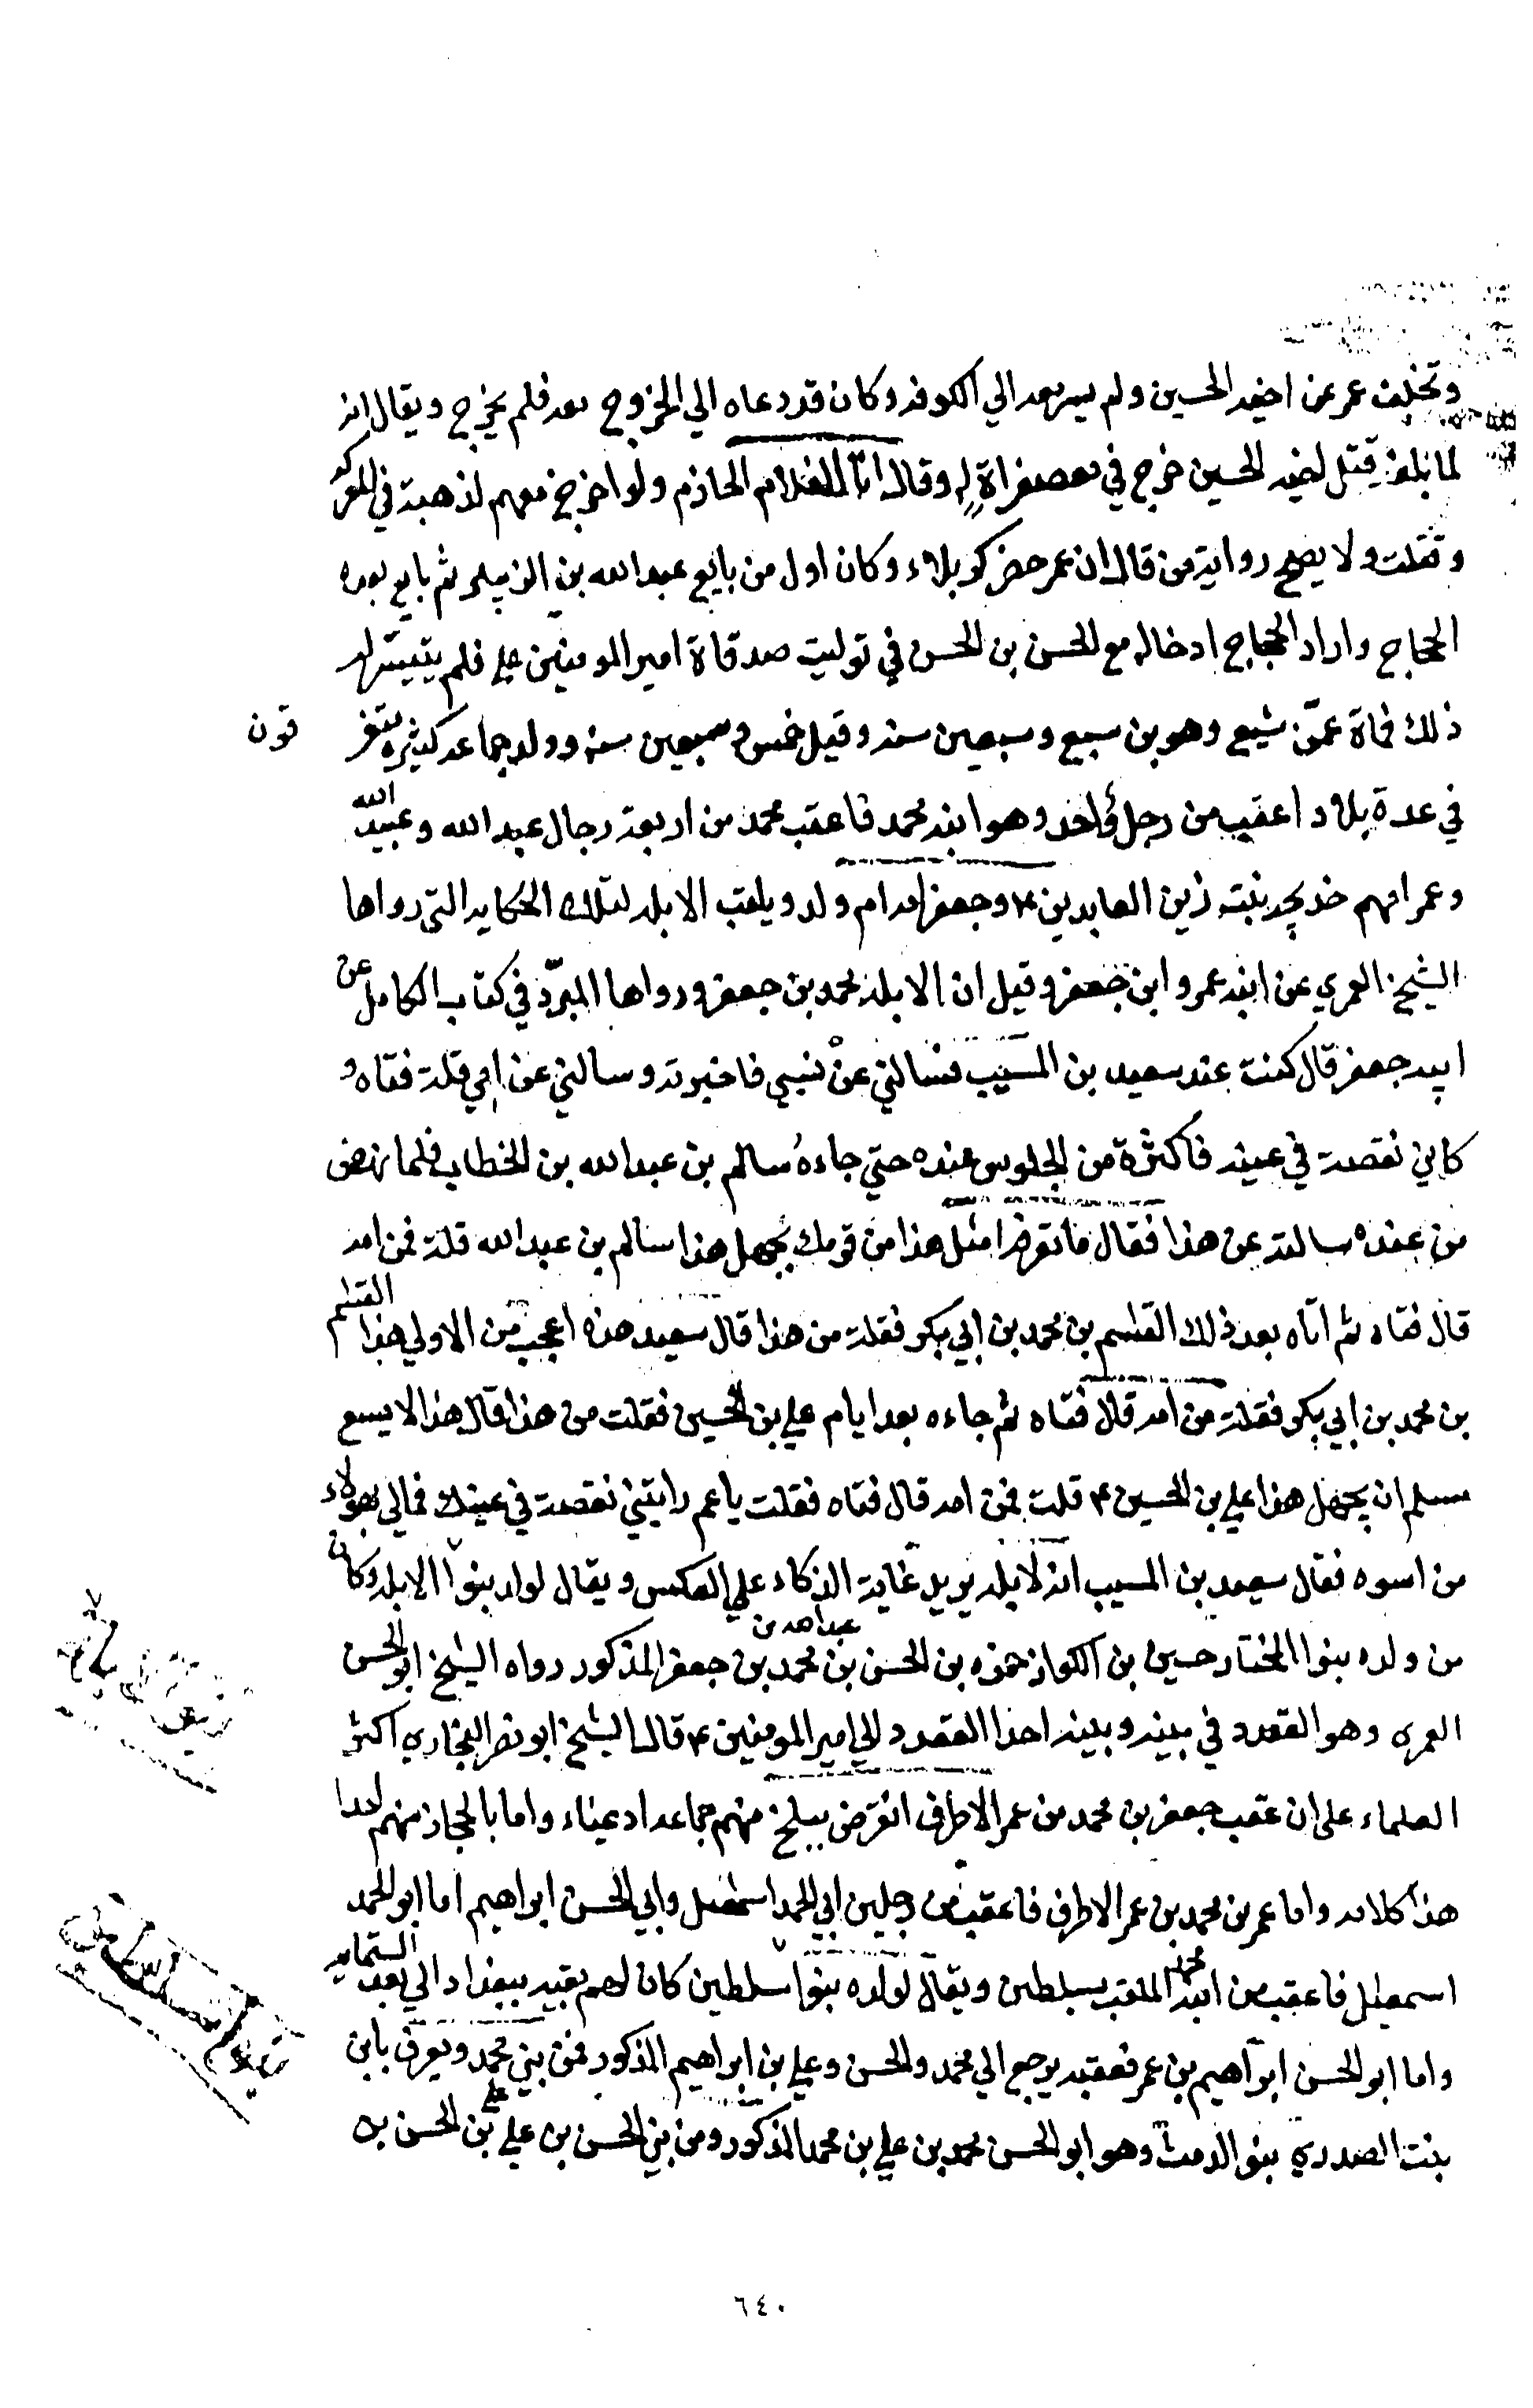 وتخلف عمر عن اخيه الحسين ولم يسر معه الي الكوفه وكان قد دعاه الي الخروج معه فلم يخرج ويقال انه
لما بلغه قتل اخيه الحسين خرج في معصفراة له وقال انا الغلام الحازم ولو اخرج معهم لذهبة في المعركه
وقتلت ولا يصح رواية من قال ان عمر حضر كربلاء وكان اول من بايع عبدالله بن الزبير ثم بايع بعده
الحجاج واراد الحجاج ادخاله مع الحسن بن الحسن في توليت صدقاة امير المومنين علي فلم يتيسر له
ذلك فماة عمر بينبع وهو بن سبع وسبعين سنه وقيل خمس وسبعين سنه وولده جماعه كثيره متفرقون
في عدة بلاد اعقب من رجل واحد وهو ابنه محمد فاعقب محمد من اربعة رجال عبدالله وعبيد الله
وعمر امهم خديجه بنت زين العابدين ع وجعفر امه ام ولد ويلقب الابله لتلك الحكايه التي رواها
الشيخ العمري عن ابنه عمرو ابن جعفر وقيل ان الابله محمد بن جعفر ورواها المبرّد في كتاب الكامل عن
ابيه جعفر قال كنت عند سعيد بن المسيب فسالني عن نسبي فاخبرته وسالني عن امي قلت فتاه و
كاني نقصت في عينه فاكثرة من الجلوس عنده حتي جاءه سالم بن عبدالله بن الخطاب فلما نهض
من عنده سالته عن هذا فقال ما تعرف مثل هذا من قومك يجهل هذا سالم بن عبدالله قلت فمن امه
قال فتاه ثم اتاه بعد ذلك القسم بن محمد بن ابي بكر فقلت من هذا قال سعيد هذه اعجب من الاولي هذا القسم
بن محمد بن ابي بكر فقلت من امه قال فتاه ثم جاءه بعد ايام علي بن الحسين فقلت من هذا قال هذا لا يسع
مسلم ان يجهل هذا علي بن الحسين ع قلت فمن امه قال فتاه فقلت يا عم رايتني نقصت في عينك فمالي بهولاء
من اسوه فقال سعيد بن المسيب انه لابله يريد غاية الذكاء علي العكس ويقال لولده بنوا الابله وكان
من ولده بنوا المختار حسين بن الكواز حمزه بن الحسن بن محمد بن عبدالله بن جعفر المذكور رواه الشيخ ابو الحسن
العمري وهو القعدد في بينه وبينه احدا القعدد الي امير المومنين ع قال الشيخ ابو نصر البخاري اكثر
العلماء على ان عقب جعفر بن محمد بن عمر الاطرف انقرض ببلخ منهم جماعه ادعياء واما بالحجاز منهم احدا
هذا كلامه واما عمر بن محمد بن عمر الاطرف فاعقب من رجلين ابي الحمد اسمعيل وابي الحسن ابراهيم اما ابو الحمد
اسمعيل فاعقب من ابنه محمد الملقب بسلطين ويقال لولده بنوا سلطين كان لهم بقيه ببغداد الي بعد الستمايه
واما ابو الحسن ابراهيم بن عمر فعقبه يرجع الي محمد والحسن وعلي بن ابراهيم المذكور فمن بني محمد ويعرف بابن
بنت الصدري بنو الدمث وهو ابو الحسن محمد بن علي بن محمد المذكور ومن بني الحسن بن علي بن علي بن الحسن بن
٦٤٠